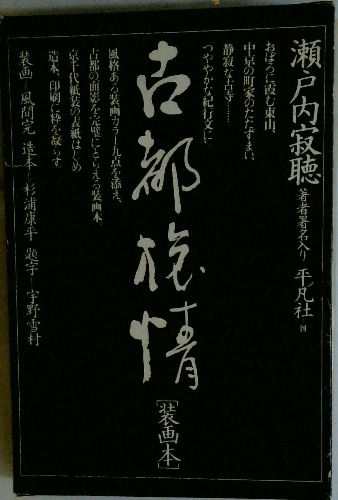 瀬戸内寂聴
著者署名入り
平凡社
刊
おぼろに霞む東山、
中京の町家のたたずまい、
静寂な古寺……
つややかな紀行文に
古都旅情
[装画本]
風格ある装画カラー九点を添え、
古都の面影を完璧にとらえる装画本。
京千代紙装の表紙はじめ
造本、印刷に粋を凝らす。
装画－風間完 造本－杉浦康平 題字－宇野雪村